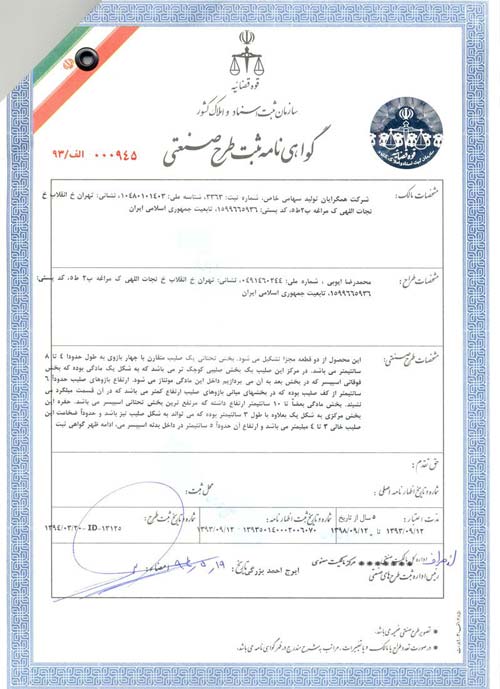 قوه قضائیه
سازمان ثبت اسناد و املاک کشور
گواهی نامه ثبت طرح صنعتی
۰۰۰۹۴۵ الف/۹۳
مشخصات مالک:
شرکت همگرایان تولید سهامی خاص، شماره ثبت: ۳۳۶۳، شناسه ملی: ۱۰۴۸۰۱۰۱۴۰۳، نشانی: تهران خ انقلاب خ
نجات اللهی ک مراغه ب۲ ط۵، کد پستی: ۱۵۹۹۶۶۵۹۳۶، تابعیت جمهوری اسلامی ایران
مشخصات طراح:
محمدرضا ایوبی ، شماره ملی: ۰۴۹۱۴۶۰۲۴۴، نشانی: تهران خ انقلاب خ نجات اللهی ک مراغه ب۲ ط۵، کد پستی:
۱۵۹۹۶۶۵۹۳۶، تابعیت جمهوری اسلامی ایران
مشخصات طرح صنعتی:
این محصول از دو قطعه مجزا تشکیل می شود. بخش تحتانی یک صلیب متقارن با چهار بازوی به طول حدودا ۴ تا ۸
سانتیمتر می باشد. در مرکز این صلیب یک بخش صلیبی کوچک تر می باشد که به شکل یک مادگی بوده که بخش
فوقانی اسپیسر که در بخش بعد به آن می پردازیم داخل این مادگی مونتاژ می شود. ارتفاع بازوهای صلیب حدوداً ۶
سانتیمتر از کف صلیب بوده که در بخشهای میانی بازوهای صلیب ارتفاع کمتر می باشد که در آن قسمت میلگرد می
نشیند. بخش مادگی بعضاً تا ۱۰ سانتیمتر ارتفاع داشته که مرتفع ترین بخش تحتانی اسپیسر می باشد. حفره این
بخش مرکزی به شکل یک بعلاوه با طول ۳ سانتیمتر بوده که می تواند به شکل صلیب نیز باشد و حدوداً ضخامت این
صلیب خالی ۳ تا ۴ میلیمتر می باشد و ارتفاع آن حدوداً ۵ سانتیمتر در داخل بدنه اسپیسر می، ادامه ظهر گواهی ثبت
حق تقدم:
شماره و تاریخ اظهار نامه اصلی: محل ثبت:
مدت اعتبار: ۵ سال از تاریخ شماره و تاریخ ثبت اظهارنامه: شماره و تاریخ ثبت طرح:
۱۳۹۳/۰۹/۱۲ تا ۱۳۹۸/۰۹/۱۲ ۱۳۹۳۵۰۱۴۰۰۰۳۰۰۶۰۷۰ ۱۳۹۳/۰۹/۱۲ ۱۳۹۴/۰۳/۲۰-ID-۱۳۱۲۵
مرکز مالکیت معنوی
رئیس اداره ثبت طرح های صنعتی ایرج احمد بزرگی تاریخ: امضاء:
* تصویر طرح صنعتی ضمیمه می باشد.
* در صورت تعدد طراح یا مالک و یا تغییرات، مراتب به شرح مندرج در ظهر گواهی نامه می باشد.